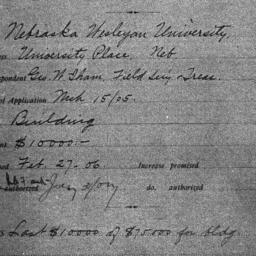 Nebraska Wesleyan University,
University Place, Neb.
pondent Geo. W. Isham, Field Secy Treas.
of Application Mch 15/05.
Building
$10000.-
Feb. 27. 06. Increase promised
authorized do. authorized
Last $10000 of $75000 for bldg.